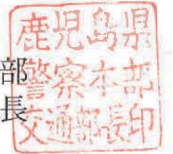 部長
鹿児島県
警察本部
交通部長印